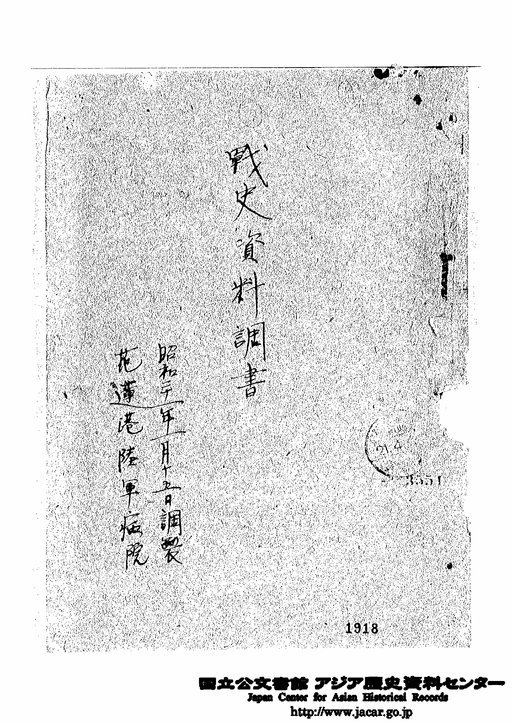 戦史資料調書
昭和二十一年一月十五日調製
花蓮港陸軍病院
21.4
3551
1918
国立公文書館 アジア歴史資料センター
Japan Center for Asian Historical Records
http://www.jacar.go.jp